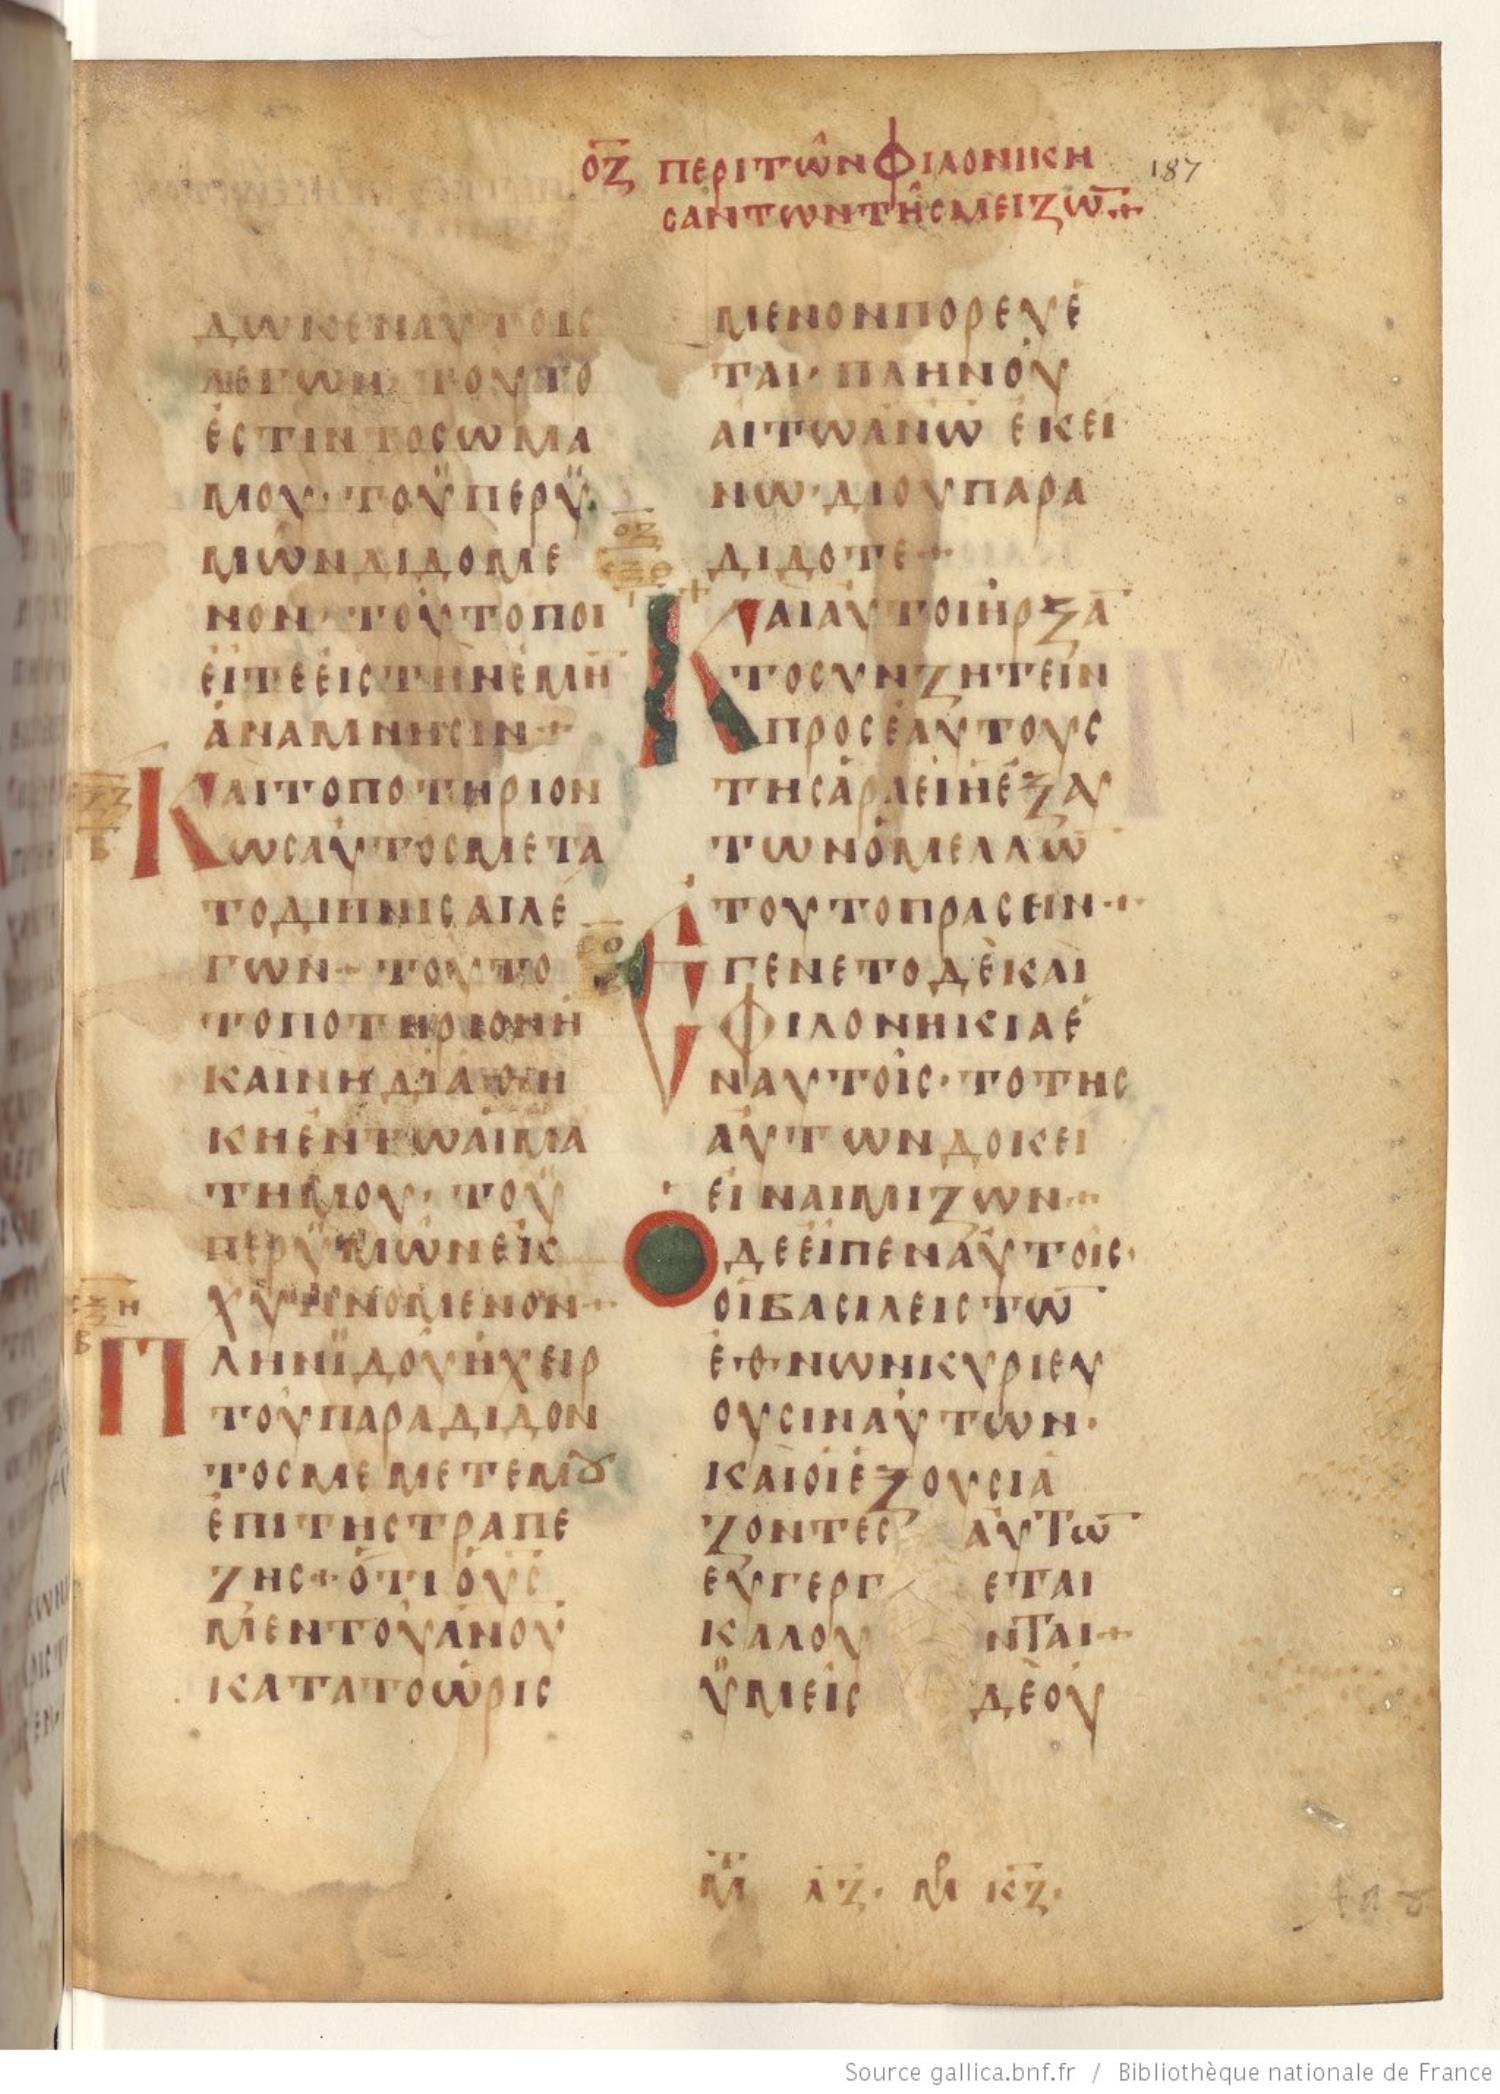 ΟΖ ΠΕΡΙΤΩΝΦΙΛΟΝΙΚΗ
187
ϹΑΝΤΩΝΤΗϹΜΕΙΖΩ̅+
ΔΩΚΕΝΑΥΤΟΙϹ
ΛΕΓΩΝ· ΤΟΥΤΟ
ΕϹΤΙΝΤΟϹΩΜΑ
ΜΟΥ· ΤΟΫΠΕΡΫ
ΜΩΝΔΙΔΟΜΕ
ΝΟΝ· ΤΟΥΤΟΠΟΙ
ΕΙΤΕΕΙϹΤΗΝΕΜΗ̅
ΑΝΑΜΝΗϹΙΝ+
ΚΑΙΤΟΠΟΤΗΡΙΟΝ
ΩϹΑΥΤΟϹΜΕΤΑ
ΤΟΔΙΠΝΙϹΑΙΛΕ
ΓΩΝ+ ΤΟΥΤΟ
ΤΟΠΟΤΗΡΙΟΝΗ
ΚΑΙΝΗΔΙΑΘΗ
ΚΗΕΝΤΩΑΙΜΑ
ΤΗΜΟΥ· ΤΟΫ
ΠΕΡΫΜΩΝΕΚ
ΧΥΝΝΟΜΕΝΟΝ+
ϹΞΗ
Β
ΠΛΗΝΪΔΟΥΗΧΕΙΡ
ΤΟΥΠΑΡΑΔΙΔΟΝ
ΤΟϹΜΕΜΕΤΕΜȢ
ΕΠΙΤΗϹΤΡΑΠΕ
ΖΗϹ+ΟΤΙΟΥ̅Ϲ̅
ΜΕΝΤΟΥΑΝΟΥ
ΚΑΤΑΤΟΩΡΙϹ
ΜΕΝΟΝΠΟΡΕΥΕ
ΤΑΙ· ΠΛΗΝΟΥ
ΑΙΤΩΑΝΩ ΕΚΕΙ
ΝΩ· ΔΙΟΥΠΑΡΑ
ΔΙΔΟΤΕ+
ΟΖ
ϹΞΘ
ΚΑΙΑΥΤΟΙΗΡΞΑ̅
ΤΟϹΥΝΖΗΤΕΙΝ
ΠΡΟϹΕΑΥΤΟΥϹ
ΤΗϹΑΡΑΕΙΗΕΞΑΥ
ΤΩΝΟΜΕΛΛΩ̅
ΤΟΥΤΟΠΡΑϹΕΙΝ+
ΕΓΕΝΕΤΟΔΕΚΑΙ
ΦΙΛΟΝΗΚΙΑΕ
ΝΑΥΤΟΙϹ· ΤΟΤΗϹ
ΑΥΤΩΝΔΟΚΕΙ
ΕΙΝΑΙΜΙΖΩΝ+
ΟΔΕΕΙΠΕΝΑΥΤΟΙϹ·
ΟΙΒΑϹΙΛΕΙϹΤΩ̅
ΕΘΝΩΝΚΥΡΙΕΥ
ΟΥϹΙΝΑΥΤΩΝ·
ΚΑΙΟΙΕΞΟΥϹΙΑ
ΖΟΝΤΕϹ ΑΥΤΩ̅
ΕΥΓΕΡΓ ΕΤΑΙ
ΚΑΛΟΥ ΝΤΑΙ+
ΫΜΕΙϹ ΔΕΟΥ
ΚΖ·
Source gallica.bnf.fr / Bibliothèque nationale de France